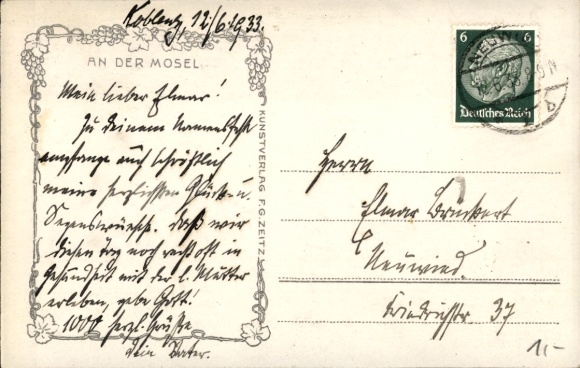 Koblenz, 12/6.1933.
AN DER MOSEL
Mein lieber Elmar!
Zu deinem Namensfeste
empfange auch schriftlich
meine herzlichsten Glück u.
Segenswünsche. Daß wir
diesen Tag noch recht oft in
Gesundheit mit der l. Mutter
erleben, gebe Gott!
1000 herzl. Grüße
Dein Vater.
KUNSTVERLAG F.G. ZEITZ
6 6
Deutsches Reich
NEUWIED
Herrn
Elmar Brückert
Neuwied.
Friedrichstr. 37
1,-